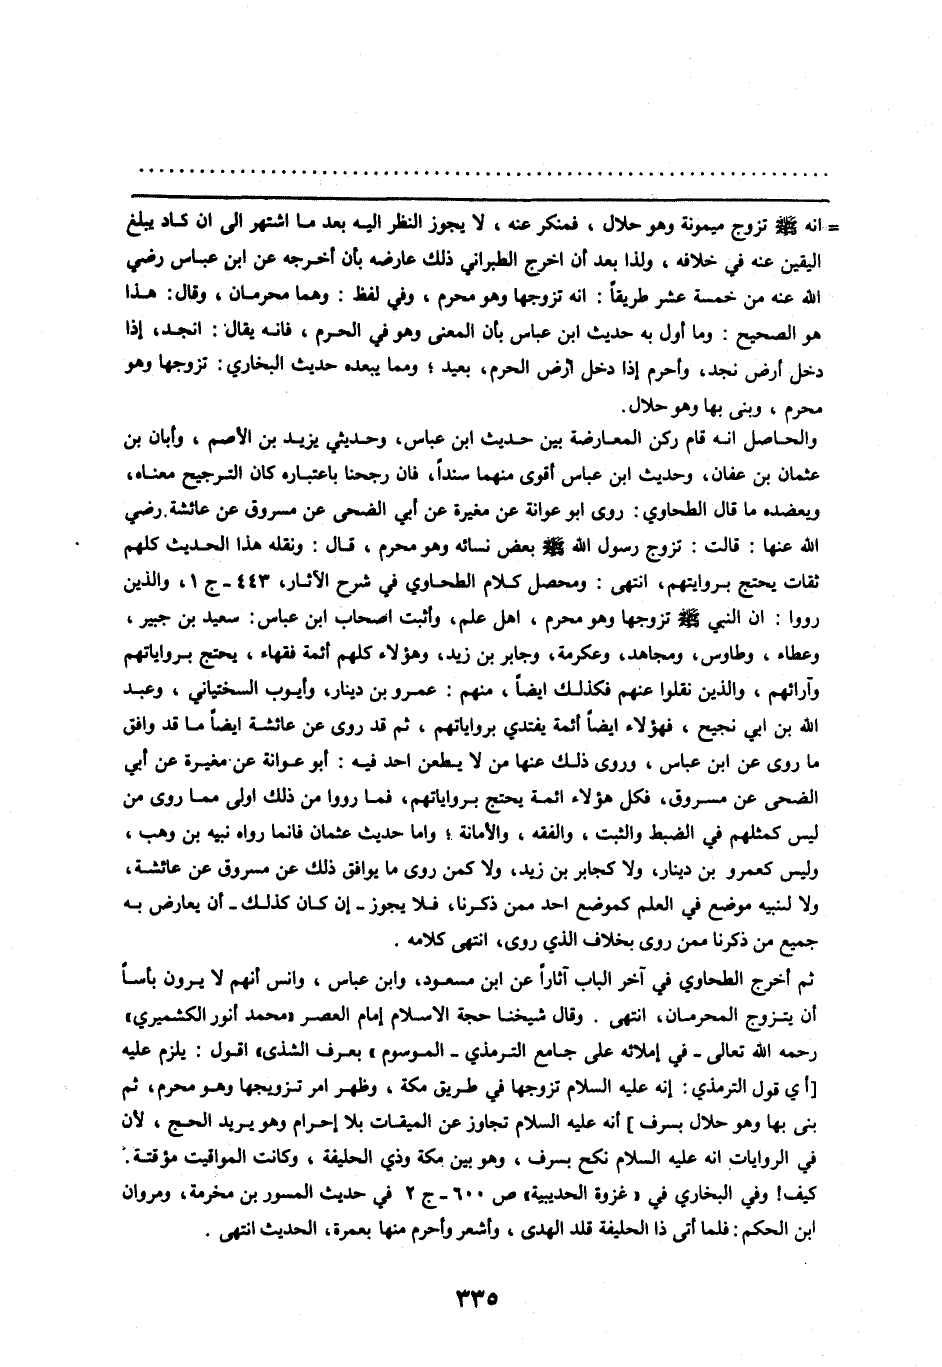 = انه ﷺ تزوج ميمونة وهو حلال ، فمنكر عنه ، لا يجوز النظر اليه بعد ما اشتهر الى ان كاد يبلغ
اليقين عنه في خلافه ، ولذا بعد أن اخرج الطبراني ذلك عارضه بأن أخرجه عن ابن عباس رضي
الله عنه من خمسة عشر طريقاً : انه تزوجها وهو محرم ، وفي لفظ : وهما محرمان ، وقال: هذا
هو الصحيح : وما أول به حديث ابن عباس بأن المعنى وهو في الحرم ، فانه يقال : انجد، إذا
دخل أرض نجد، وأحرم إذا دخل أرض الحرم، بعيد ؛ ومما يبعده حديث البخاري : تزوجها وهو
محرم ، وبنى بها وهو حلال.
والحاصل انه قام ركن المعارضة بين حديث ابن عباس، وحديثي يزيد بن الأصم ، وأبان بن
عثمان بن عفان، وحديث ابن عباس أقوى منهما سنداً، فان رجحنا باعتباره كان الترجيح معناه،
ويعضده ما قال الطحاوي : روى ابو عوانة عن مغيرة عن أبي الضحى عن مسروق عن عائشة رضي
الله عنها : قالت : تزوج رسول الله ﷺ بعض نسائه وهو محرم ، قال : ونقله هذا الحديث كلهم
ثقات يحتج بروايتهم، انتهى : ومحصل كلام الطحاوي في شرح الآثار، ٤٤٣ - ج ١، والذين
رووا : ان النبي ﷺ تزوجها وهو محرم ، اهل علم، وأثبت اصحاب ابن عباس: سعيد بن جبير ،
وعطاء ، وطاوس، ومجاهد، وعكرمة، وجابر بن زيد، وهؤلاء كلهم أئمة فقهاء ، يحتج برواياتهم
وآرائهم ، والذين نقلوا عنهم فكذلك ايضاً ، منهم : عمرو بن دينار، وأيوب السختياني ، وعبد
الله بن ابي نجيح ، فهؤلاء ايضاً أئمة يقتدي برواياتهم ، ثم قد روى عن عائشة ايضاً ما قد وافق
ما روى عن ابن عباس ، وروى ذلك عنها من لا يطعن احد فيه : أبو عوانة عن مغيرة عن أبي
الضحى عن مسروق، فكل هؤلاء ائمة يحتج برواياتهم، فما رووا من ذلك اولى مما روى من
ليس كمثلهم في الضبط والثبت ، والفقه ، والأمانة ؛ واما حديث عثمان فانما رواه نبيه بن وهب ،
وليس كعمرو بن دينار، ولا كجابر بن زيد، ولا كمن روى ما يوافق ذلك عن مسروق عن عائشة،
ولا لنبيه موضع في العلم كموضع احد ممن ذكرنا، فلا يجوز - إن كان كذلك - أن يعارض به
جميع من ذكرنا ممن روى بخلاف الذي روى، انتهى كلامه .
ثم أخرج الطحاوي في آخر الباب آثاراً عن ابن مسعود، وابن عباس ، وانس أنهم لا يرون بأساً
أن يتزوج المحرمان، انتهى . وقال شيخنا حجة الاسلام إمام العصر «محمد أنور الكشميري»
رحمه الله تعالى - في إملائه على جامع الترمذي - الموسوم « بعرف الشذى» اقول : يلزم عليه
[أي قول الترمذي : إنه عليه السلام تزوجها في طريق مكة ، وظهر امر تزويجها وهو محرم، ثم
بنى بها وهو حلال بسرف ] أنه عليه السلام تجاوز عن الميقات بلا إحرام وهو يريد الحج ، لأن
في الروايات انه عليه السلام نكح بسرف ، وهو بين مكة وذي الحليفة ، وكانت المواقيت مؤقتة .
كيف! وفي البخاري في « غزوة الحديبية» ص ٦٠٠ - ج ٢ في حديث المسور بن مخرمة، ومروان
ابن الحكم : فلما أتى ذا الحليفة قلد الهدى ، وأشعر وأحرم منها بعمرة، الحديث انتهى .
٣٣٥